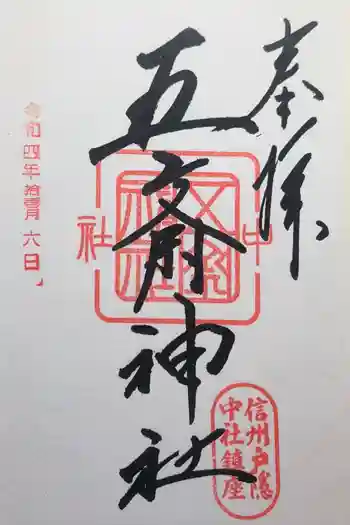 奉拝
五斎神社
中社
信州戸隠
中社鎮座
令和四年拾壹月六日